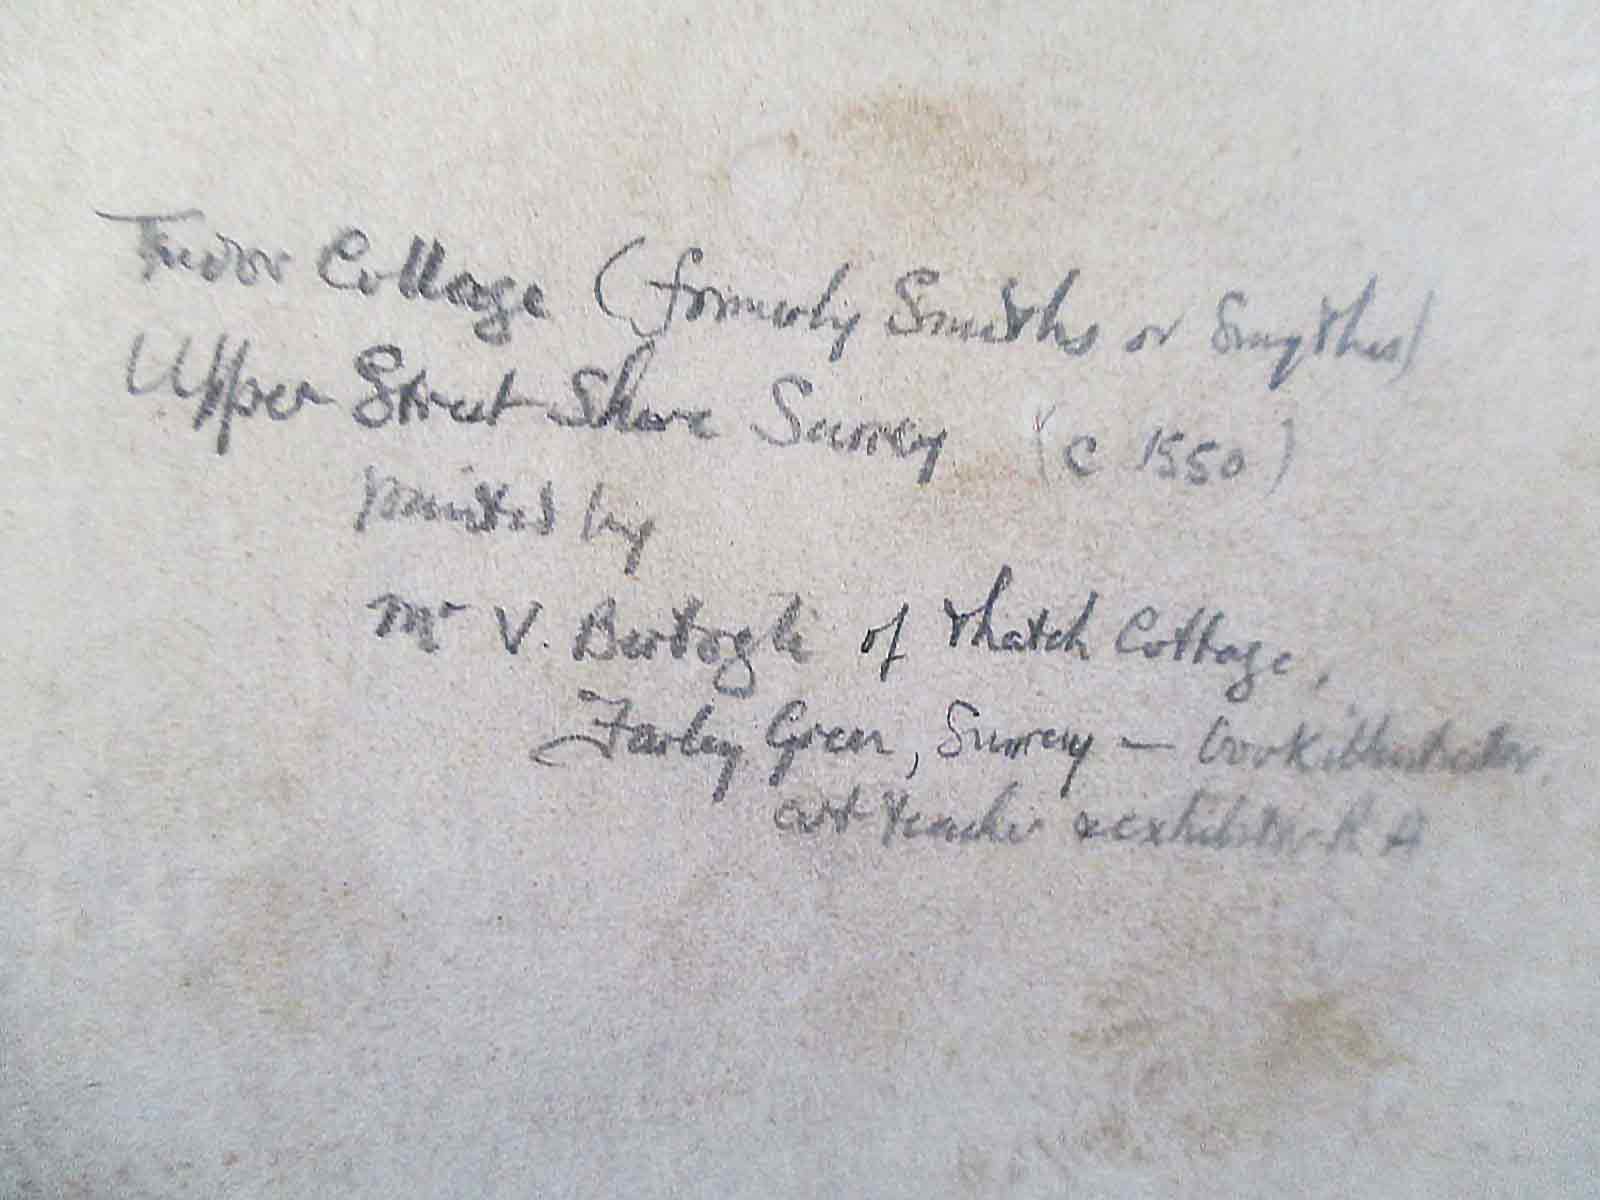 Tudor Cottage (formerly Smiths or Smythes)
Upper Street Shere Surrey (c 1550)
painted by
Mr V. Bertogli of Thatch Cottage,
Farley Green, Surrey — book illustrator,
art teacher & exhibitor R A